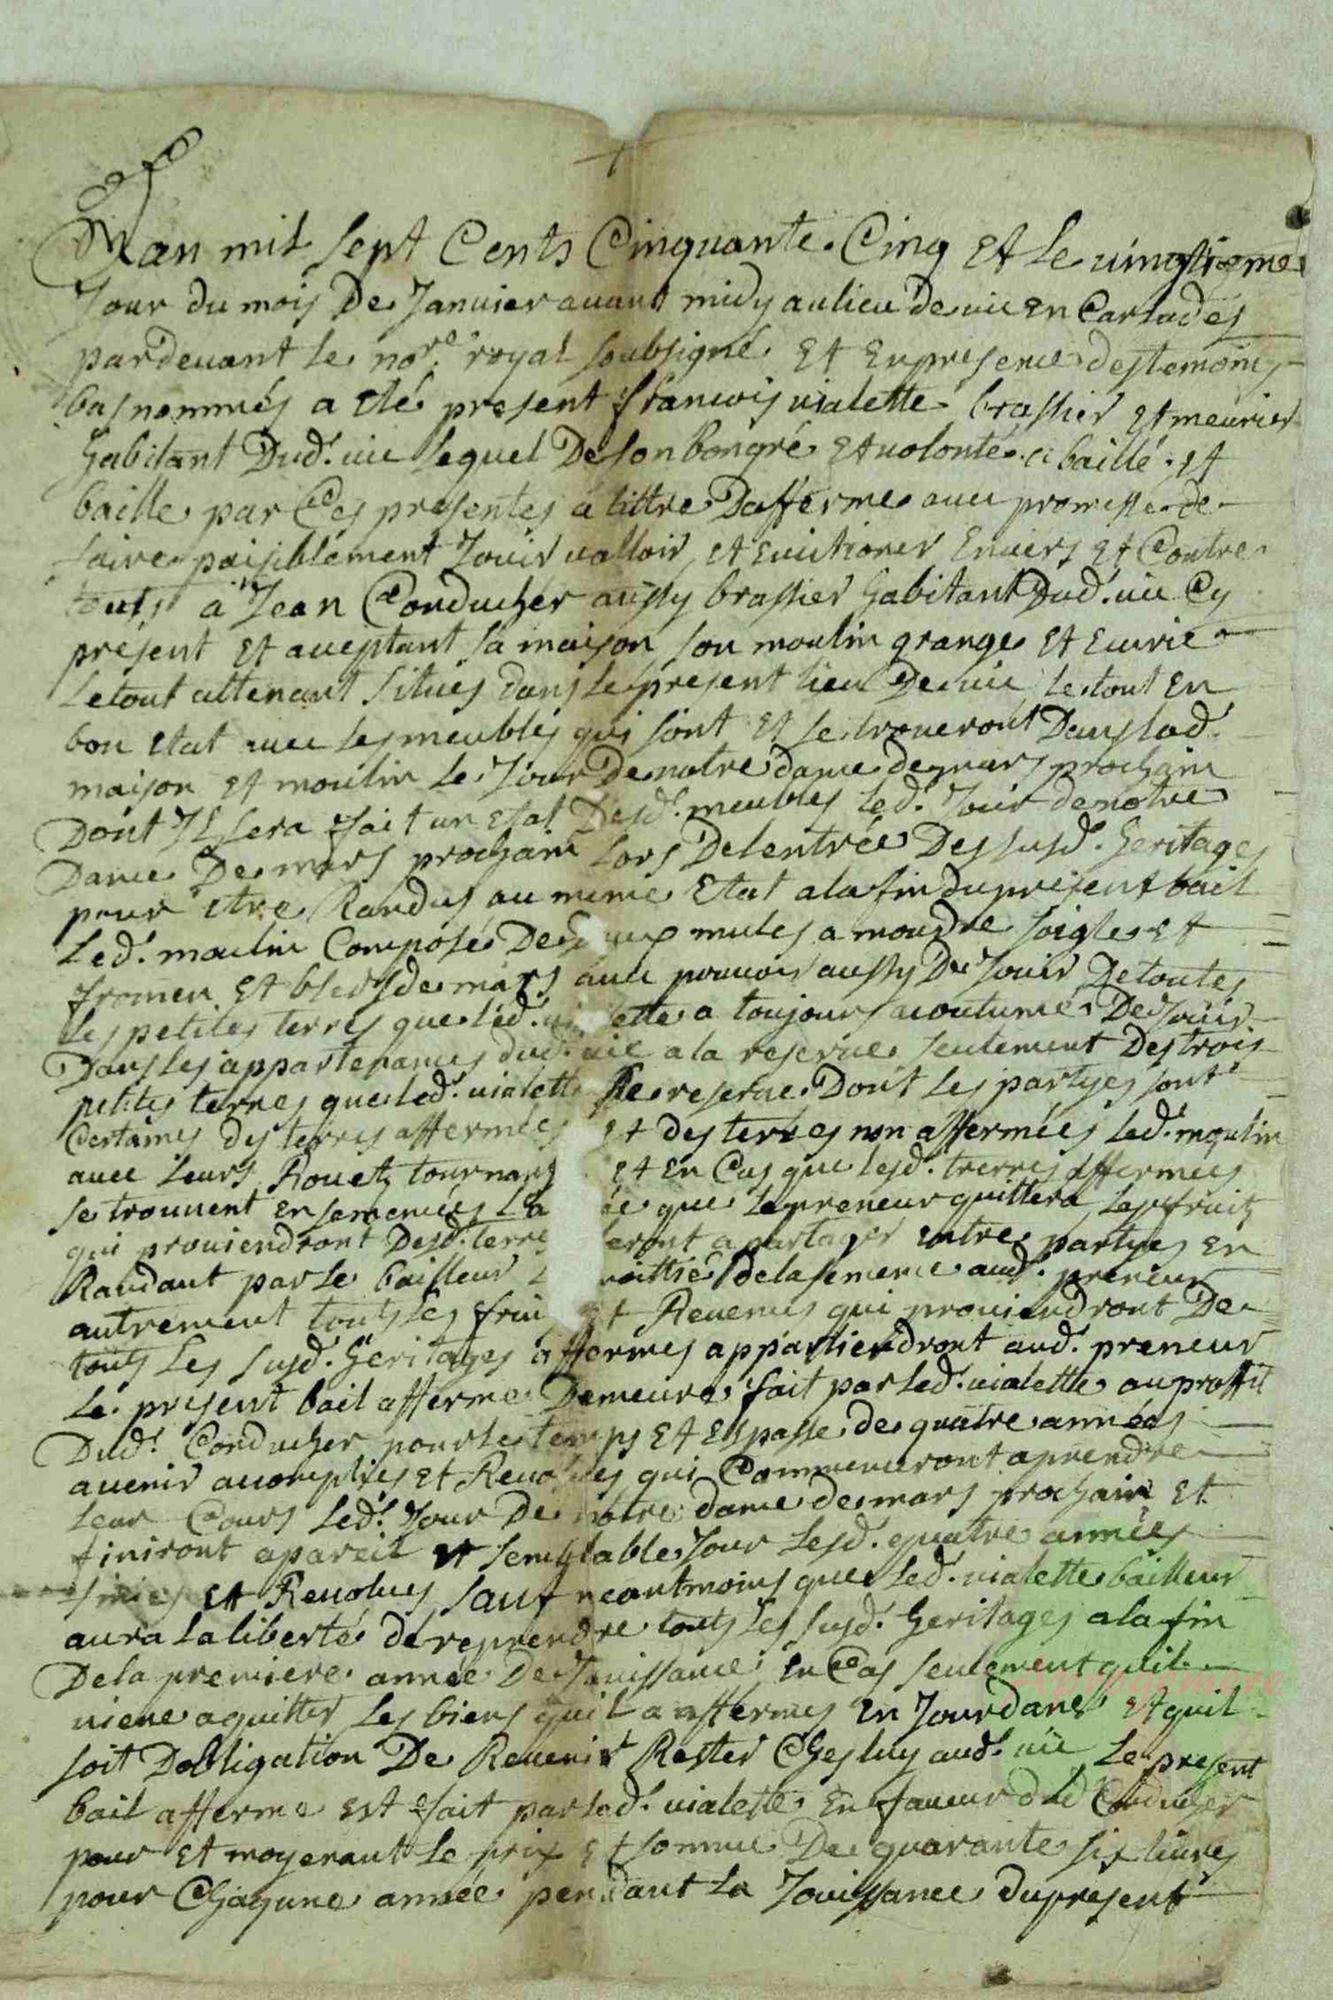 Lan mil sept Cents Cinquante Cinq Et Le vingtieme
Jour du mois De Janvier avant midy au lieu de vic En Carladés
pardevant Le no.re royal soubsigné Et En presence des temoins
bas nommés a eté present francois vialette brassier Et meunier
habitant Dud. vic Lequel De son bon gré Et volonté a baillé Et
baille par Ces presentes a tittre Dafferme avec promesse de
faire paisiblement Jouir valloir Et Evictioner Envers Et Contre
touts a Jean Conducher aussy brassier habitant Dud. vic Cy
présent Et aceptant sa maison son moulin grange Et Ecurie
Le tout attenant situés dans Le present lieu De vic Le tout En
bon Etat avec Les meubles qui sont Et se troveront Dans lad.
maison Et moulin Le Jour De notre dame de mars prochain
Dont Il sera fait un Etat Desd. meubles Led. Jour de notre
Dame De mars prochain Lors De lentrée Des susd. heritages
pour Etre Randus au meme Etat a la fin du present bail
Led. moulin Composé De mules a moudre soigle Et
fromen Et bleds de mars avec pouvoir aussy De Jouir De toutes
Les petites terres que led. vialette a toujours acoutumé De Jouir
Dans Les appartenances dud. vic a la reserve seulement Des trois
petites terres que Led. vialette se reserve Dont Les partyes sont
Certaines des terres affermées Et des terres non affermées Led. moulin
avec Leurs Rouets tournans Et En Cas que lesd. terres affermées
se trouvent Ensemencées que Le preneur quittera Les fruits
qui proviendront Desd. terres seront a partager Entre partyes En
Randant par Le bailleur moittié de la semence aud. preneur
autrement touts Les fruits Et Revenus qui proviendront De
touts Les susd. heritages affermés appartiendront aud. preneur
Le present bail afferme Demeure fait par Led. vialette au proffit
Dud. Conducher pour Le temps Et Espasse de quatre années
avenir acomplies Et Revolues qui Commenceront a prendre
Leur Cours Led. Jour De notre dame de mars prochain Et
finiront a pareil Et semblable Jour Lesd. quatre années
finies Et Revolues sauf neantmoins que Led. vialette bailleur
aura La liberté de reprendre touts Les susd. heritages a la fin
De la premiere année De Jouissance En Cas seulement quil
viene a quitter Les biens quil a affermes En Jourdane Et quil
soit Dobligation De Revenir Rester Ches luy aud. vic Le present
bail afferme Est fait par Led. vialette En faveur dud Conducher
pour Et moyenant Le prix Et somme De quarante six livres
pour Chaqune année pendant La Jouissance du present